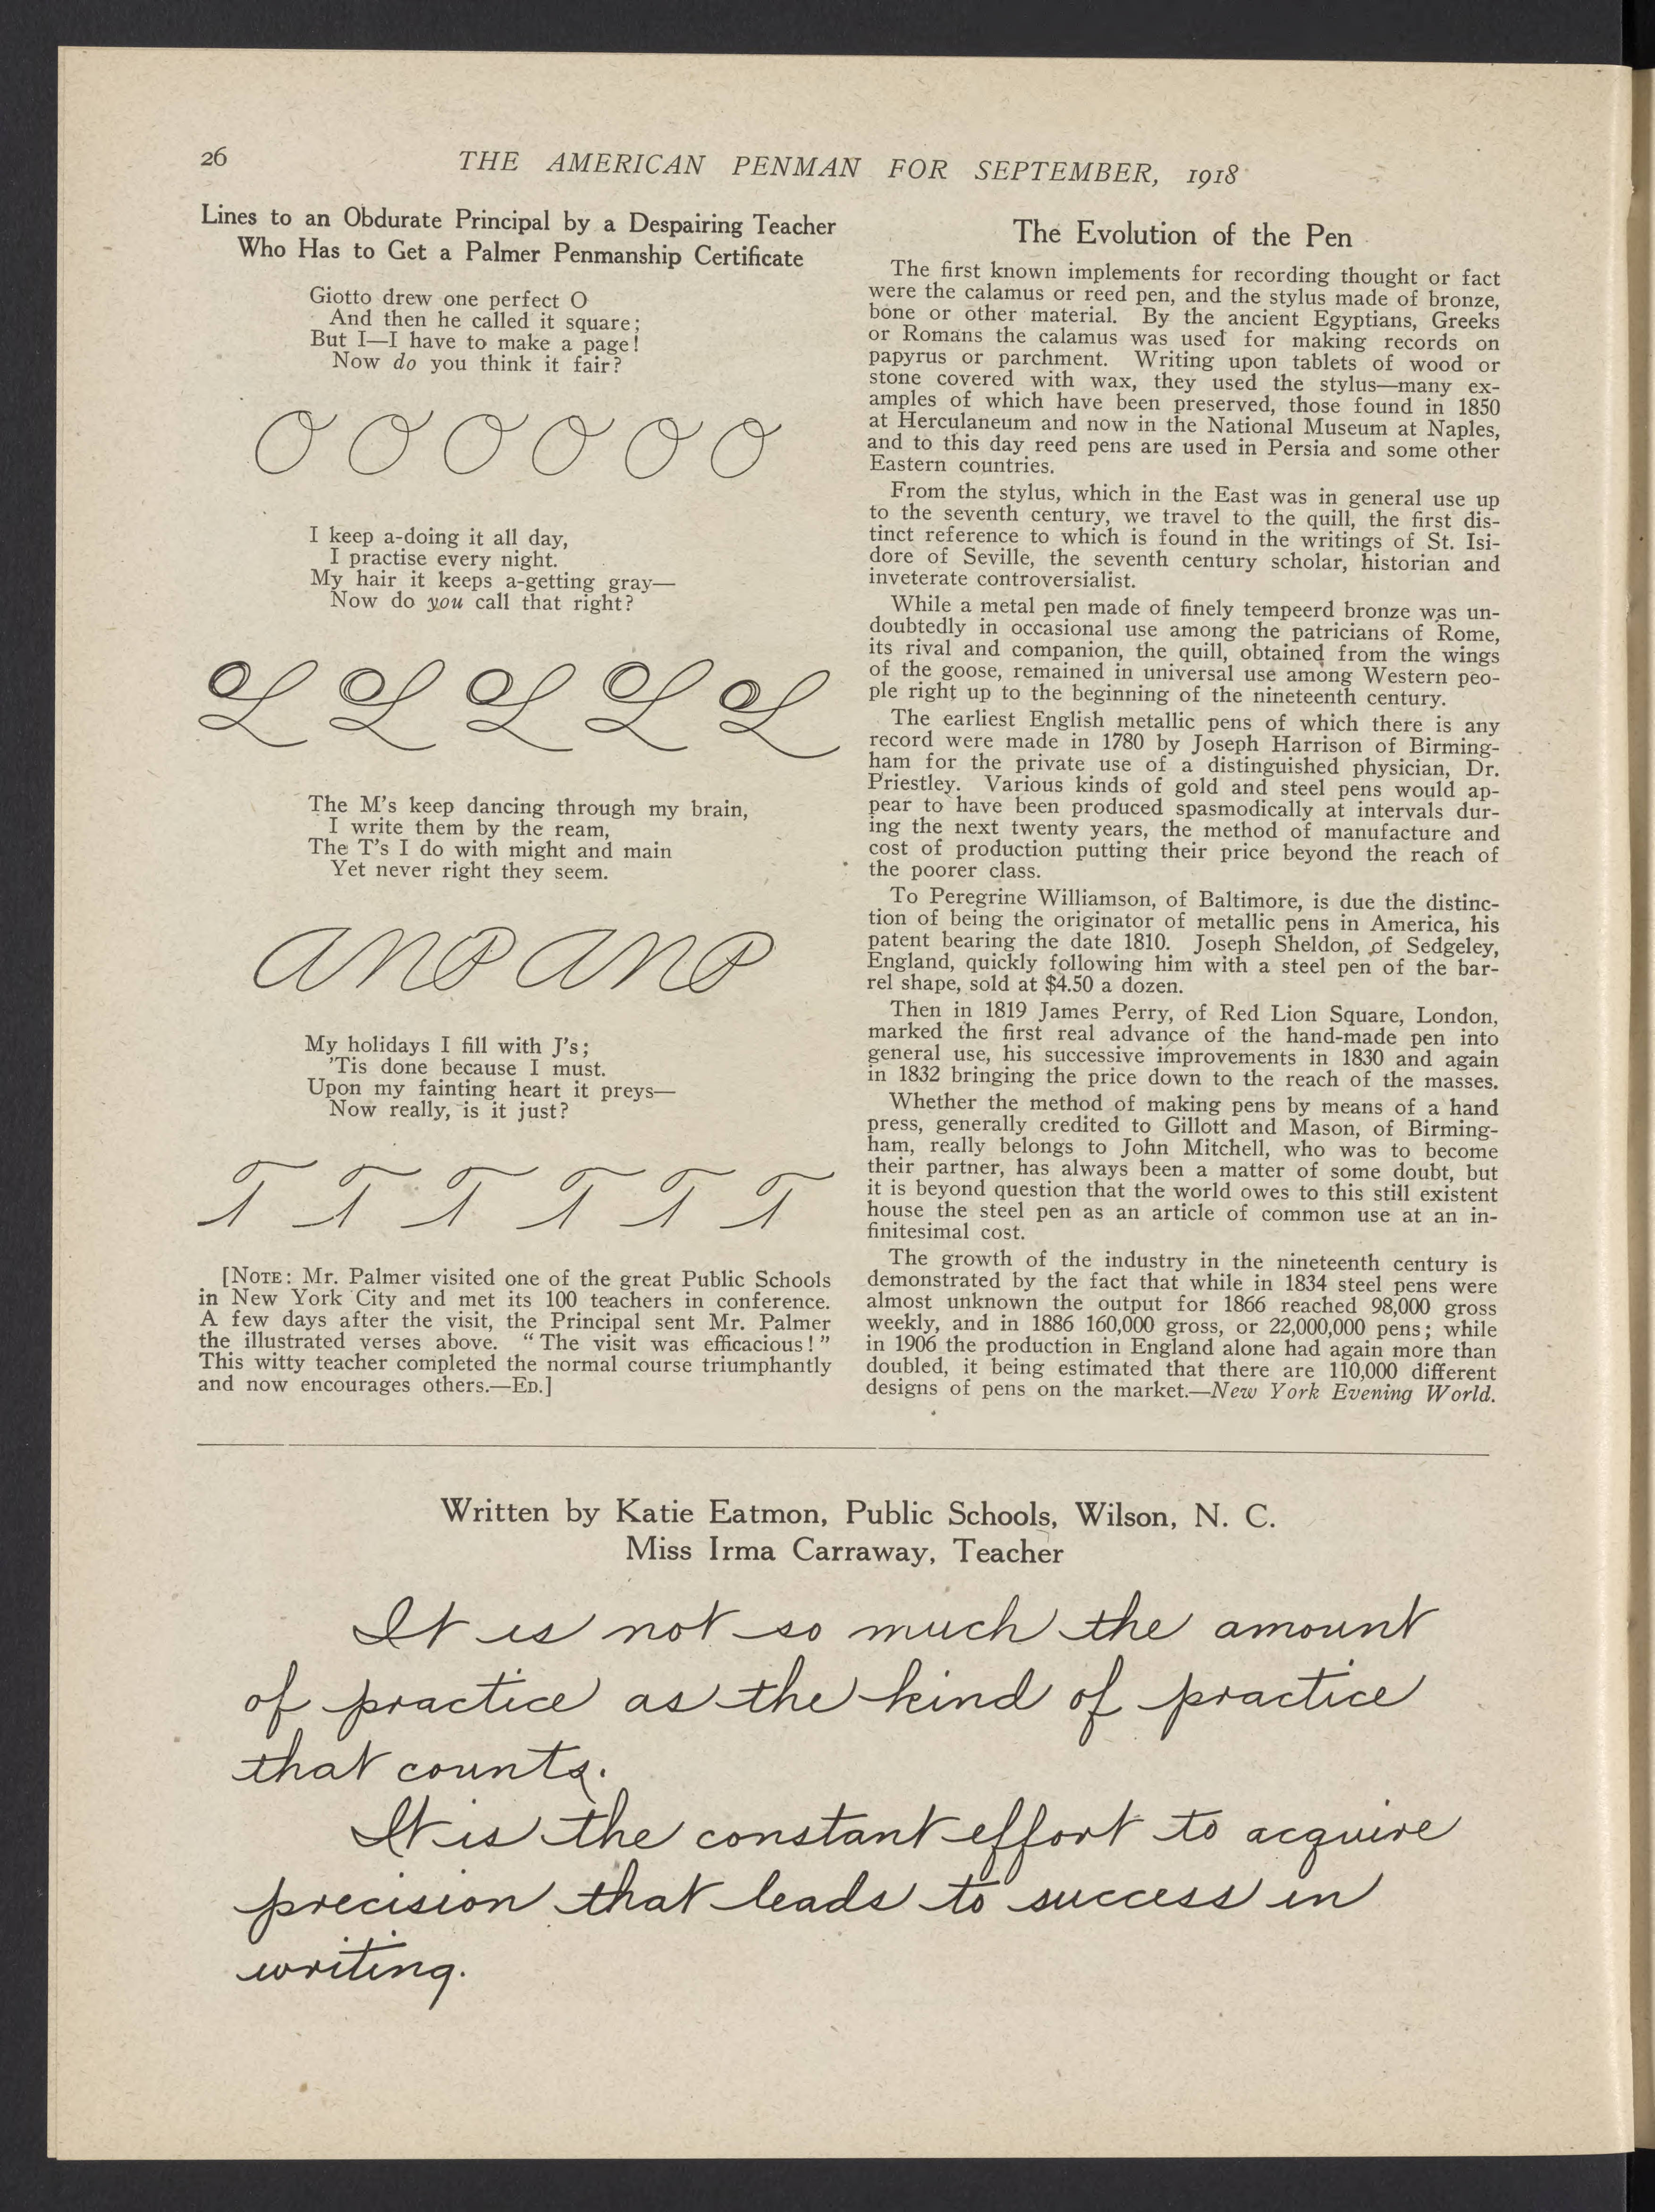 26
THE AMERICAN PENMAN FOR SEPTEMBER, 1918
Lines to an Obdurate Principal by a Despairing Teacher
Who Has to Get a Palmer Penmanship Certificate
Giotto drew one perfect O
And then he called it square;
But I—I have to make a page!
Now do you think it fair?
O O O O O O
I keep a-doing it all day,
I practise every night.
My hair it keeps a-getting gray—
Now do you call that right?
L L L L L
The M's keep dancing through my brain,
I write them by the ream,
The T's I do with might and main
Yet never right they seem.
My holidays I fill with J's;
'Tis done because I must.
Upon my fainting heart it preys—
Now really, is it just?
T T T T T T
[NOTE: Mr. Palmer visited one of the great Public Schools
in New York City and met its 100 teachers in conference.
A few days after the visit, the Principal sent Mr. Palmer
the illustrated verses above. "The visit was efficacious!"
This witty teacher completed the normal course triumphantly
and now encourages others.—ED.]
The Evolution of the Pen
The first known implements for recording thought or fact
were the calamus or reed pen, and the stylus made of bronze,
bone or other material. By the ancient Egyptians, Greeks
or Romans the calamus was used for making records on
papyrus or parchment. Writing upon tablets of wood or
stone covered with wax, they used the stylus—many ex-
amples of which have been preserved, those found in 1850
at Herculaneum and now in the National Museum at Naples,
and to this day reed pens are used in Persia and some other
Eastern countries.
From the stylus, which in the East was in general use up
to the seventh century, we travel to the quill, the first dis-
tinct reference to which is found in the writings of St. Isi-
dore of Seville, the seventh century scholar, historian and
inveterate controversialist.
While a metal pen made of finely tempeerd bronze was un-
doubtedly in occasional use among the patricians of Rome,
its rival and companion, the quill, obtained from the wings
of the goose, remained in universal use among Western peo-
ple right up to the beginning of the nineteenth century.
The earliest English metallic pens of which there is any
record were made in 1780 by Joseph Harrison of Birming-
ham for the private use of a distinguished physician, Dr.
Priestley. Various kinds of gold and steel pens would ap-
pear to have been produced spasmodically at intervals dur-
ing the next twenty years, the method of manufacture and
cost of production putting their price beyond the reach of
the poorer class.
To Peregrine Williamson, of Baltimore, is due the distinc-
tion of being the originator of metallic pens in America, his
patent bearing the date 1810. Joseph Sheldon, of Sedgeley,
England, quickly following him with a steel pen of the bar-
rel shape, sold at $4.50 a dozen.
Then in 1819 James Perry, of Red Lion Square, London,
marked the first real advance of the hand-made pen into
general use, his successive improvements in 1830 and again
in 1832 bringing the price down to the reach of the masses.
Whether the method of making pens by means of a hand
press, generally credited to Gillott and Mason, of Birming-
ham, really belongs to John Mitchell, who was to become
their partner, has always been a matter of some doubt, but
it is beyond question that the world owes to this still existent
house the steel pen as an article of common use at an in-
finitesimal cost.
The growth of the industry in the nineteenth century is
demonstrated by the fact that while in 1834 steel pens were
almost unknown the output for 1866 reached 98,000 gross
weekly, and in 1886 160,000 gross, or 22,000,000 pens; while
in 1906 the production in England alone had again more than
doubled, it being estimated that there are 110,000 different
designs of pens on the market.—New York Evening World.
Written by Katie Eatmon, Public Schools, Wilson, N. C.
Miss Irma Carraway, Teacher
It is not so much the amount
of practice as the kind of practice
that counts.
It is the constant effort to acquire
precision that leads to success in
writing.